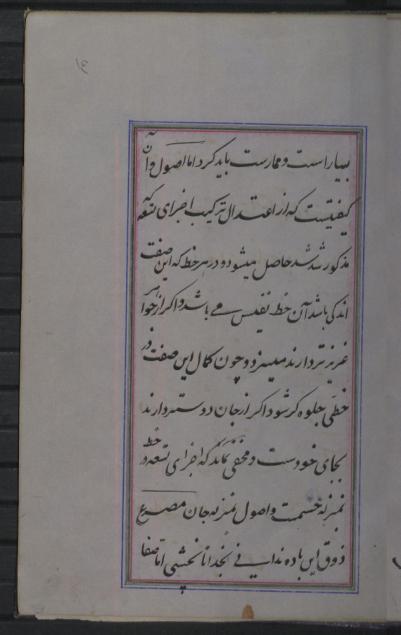 ۱۶
بیاراست و ممارست باید کرد اما اصول و آن
کیفیتیست که از اعتدال ترکیب اجزای تسعه که
مذکور شد حاصل میشود و در هر خط که این صفت
اندکی باشد آن خط نفیس می باشد و اگر از جواهر
عزیزتر دارند میسزد و چون کمال این صفت در
خطی جلوه گر شود اگر از جان دوستر دارند
بجای خودست و مخفی نماند که اجزای تسعه در خط
بمنزله جسمست و اصول بمنزله جان مصرع
ذوق این باده ندانی بخدا تا نچشی اما صفا